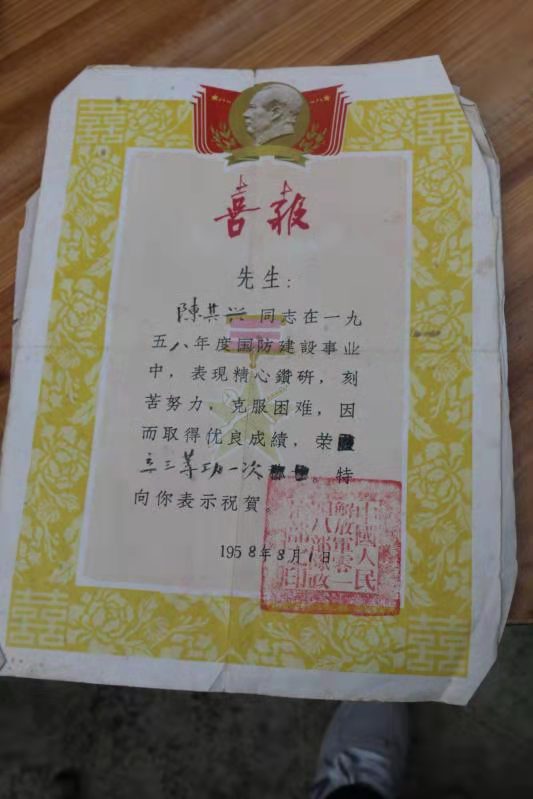 喜报
先生：
陳其兴 同志在一九
五八年度国防建設事业
中，表現精心鑽研，刻
苦努力，克服困难，因
而取得优良成績，荣
立三等功一次。特
向你表示祝賀。
1958年8月1日
中國人民
解放軍